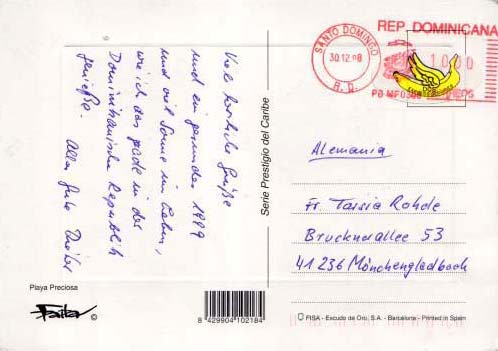 REP DOMINICANA
SANTO DOMINGO
30.12.98
R. D.
1000
Viele herzliche Grüße
und ein gesundes 1999
und viel Sonne im Leben,
wie ich das gerade in der
Dominikanische Republik
genieße. Alles Gute
Serie Prestigio del Caribe
Alemania
Fr. Tassia Rohde
Brucknerallee 53
41236 Mönchengladbach
Playa Preciosa
©
8 429904 102184
FISA - Escudo de Oro, S.A. - Barcelona - Printed in Spain